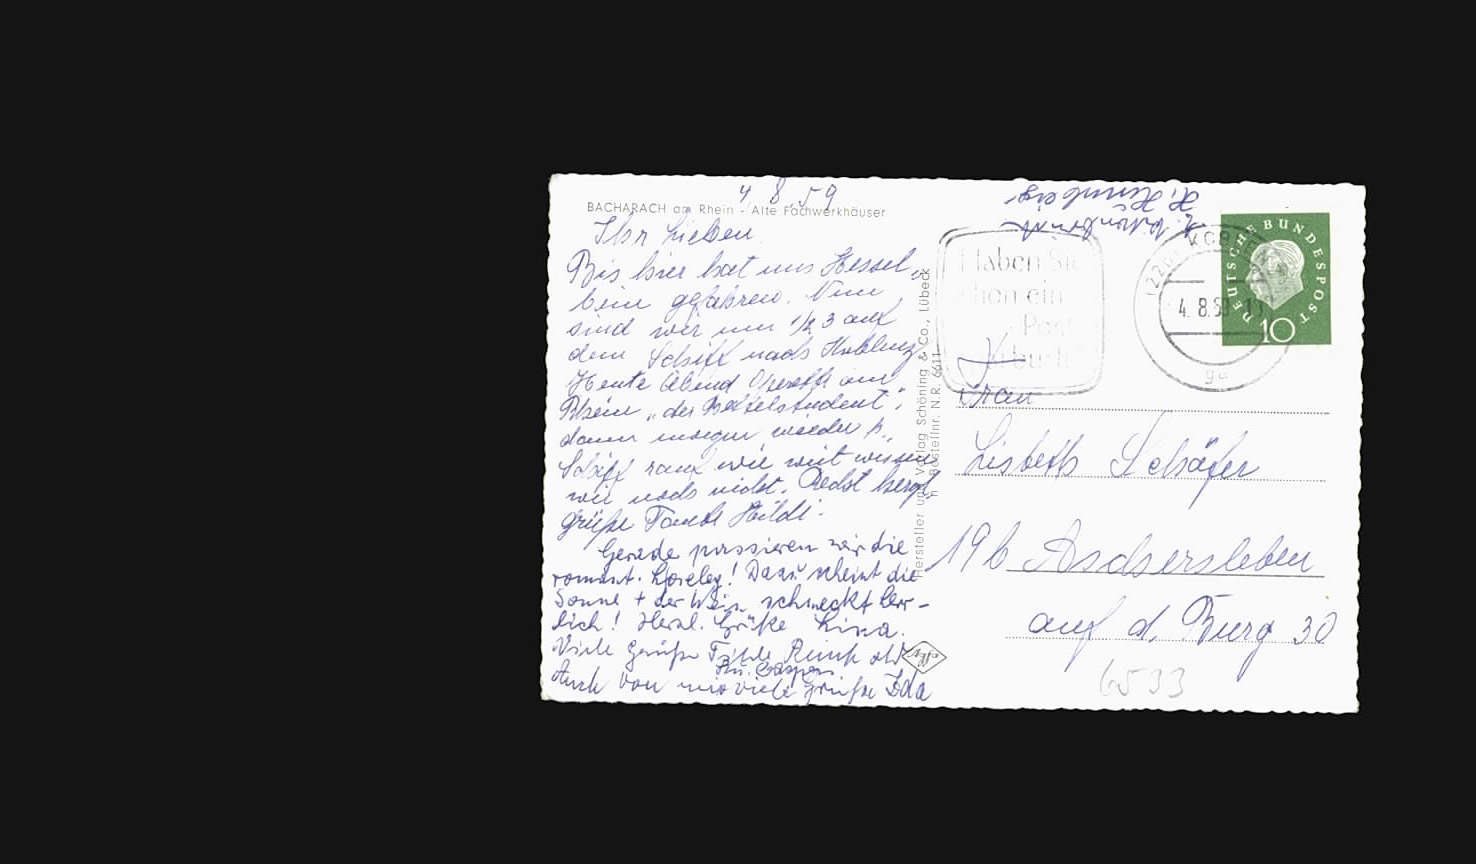 4.8.59
BACHARACH am Rhein - Alte Fachwerkhäuser
Ihr Lieben.
Bis hier hat uns Hessel
gefahren. Nun
sind wir um 1/2 3 auf
dem Schiff nach Koblenz
Heute Abend Operette am
Rhein „der Bettelstudent",
dann morgen wieder p.
Schiff rauf wie weit wissen
wir noch nicht. Recht herzl.
Grüße Tante Hildi.
Gerade passieren wir die
romant. Loreley! Dazu scheint die
Sonne + der Wein schmeckt herr-
lich! Herzl. Grüße Lina.
Viele Grüße
Auch von mir viele Grüße Ida
Hersteller und Verlag Schöning & Co., Lübeck
Bestellnr. N.R. 6611
Agfa
Haben Sie
schon ein
Post
DEUTSCHE BUNDESPOST
10
4.8.59
Frau
Lisbeth Schäfer
19b Aschersleben
auf d. Burg 30
6533